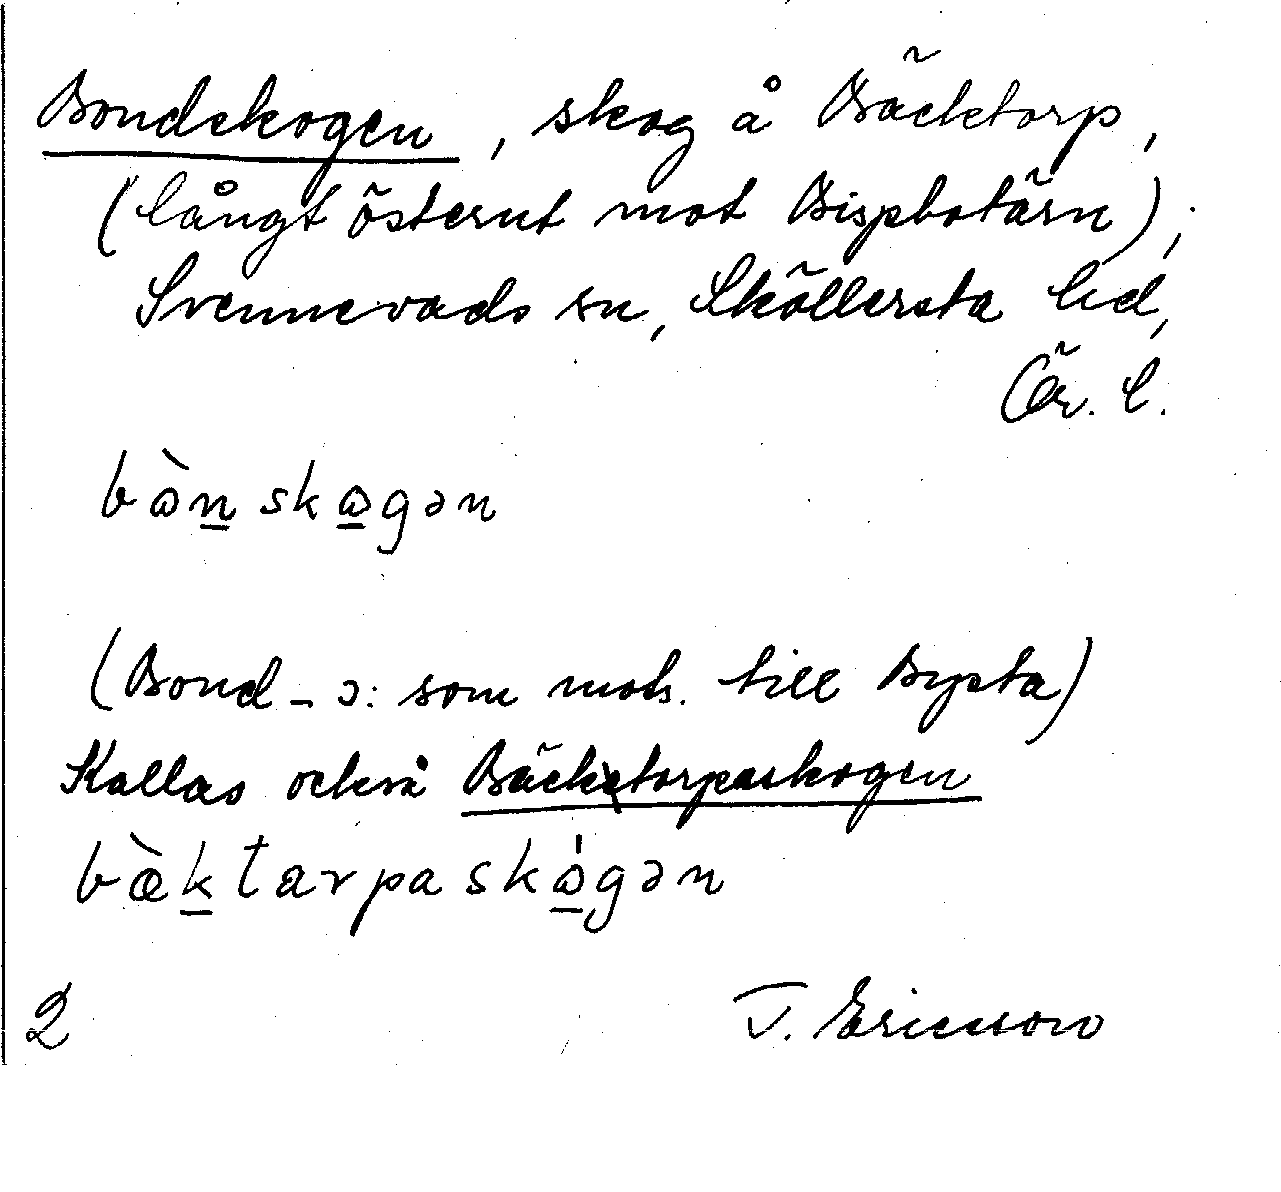 Bondskogen, skog å Bäcktorp,
(långt österut mot Bispbotärn);
Svennevads sn, Sköllersta hd,
Ör. l.
bɷ̀n̲skɷ̲gən
(Bond- ɔ: som mots. till Bysta)
Kallas också Bäcktorpaskogen
bæ̀k̲tarpaskɷ̲́gən
2 T. Ericsson